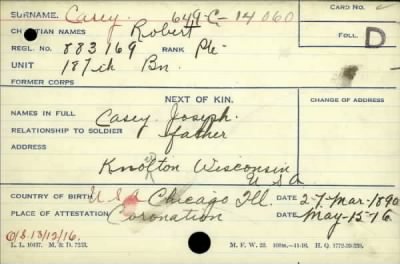 SURNAME. Casey. 649-C-14060 CARD NO.
CHRISTIAN NAMES Robert FOLL. D
REGL. NO. 883169 RANK Pte.
UNIT 187th Bn.
FORMER CORPS
NEXT OF KIN. CHANGE OF ADDRESS
NAMES IN FULL Casey Joseph.
RELATIONSHIP TO SOLDIER father
ADDRESS
Knofton Wisconsin
U S A
COUNTRY OF BIRTH U S A Chicago Ill. DATE 27-Mar-1890
PLACE OF ATTESTATION Coronation DATE May-15-16
O/S 13/12/16.
L. L. 10437. M. & D. 7233. M. F. W. 22. 100m.-11-16. H. Q. 1772-39-339.